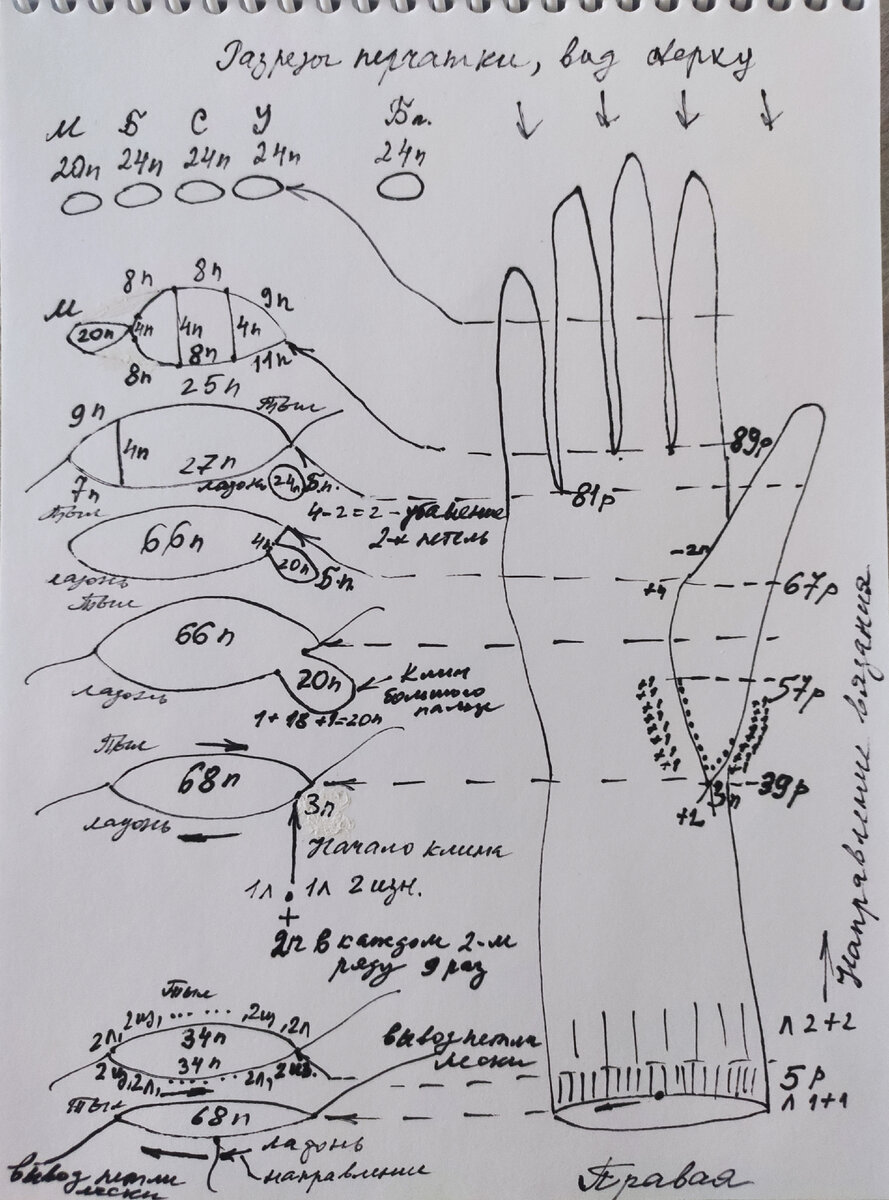 Разрезы перчатки, вид сверху
М Б С У Бп.
20п 24п 24п 24п 24п
8п 8п 9п
М
20п 4п 4п 4п
8п 8п 11п
25п
9п Тыл
4п
27п
7п ладонь 24п Б.п.
89р
81р
4-2=2 - убавление
2-х петель
Тыл
66п 4п
20п Б.п.
ладонь
-2п
+4
67р
Тыл
66п
20п
ладонь
Клин
большого
пальца
1+18+1=20п
57р
Тыл
68п
3п
ладонь
39р
3п
+2
Начало клина
1л 1л 2изн.
+
2п в каждом 2-м
ряду 9 раз
Направление вязания
Тыл
2л, 2из, ..... ,2из, 2л
34п
34п
2из, 2л, ..... 2л, 2из.
вывод петли
лески
л 2+2
5р
л 1+1
Тыл
68п
ладонь
направление
вывод петли
лески
Правая